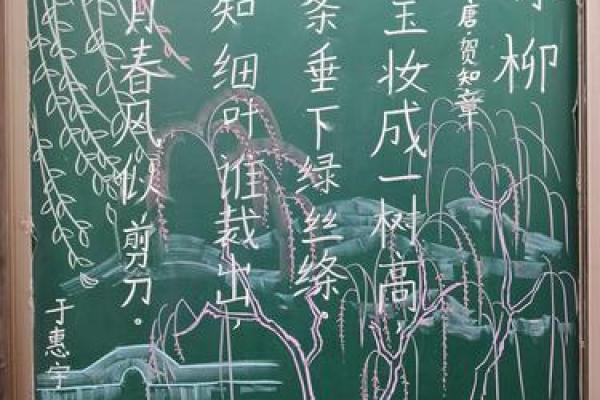 柳
唐·贺知章
玉妆成一树高，
条垂下绿丝绦。
知细叶谁裁出，
月春风似剪刀。
于惠宇